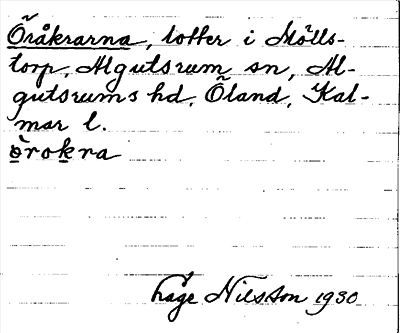 Öråkrarna, totter i Mölls-
torp, Algutsrum sn, Al-
gutsrums hd, Öland, Kal-
mar l.
örokra
Håge Nilsson 1930